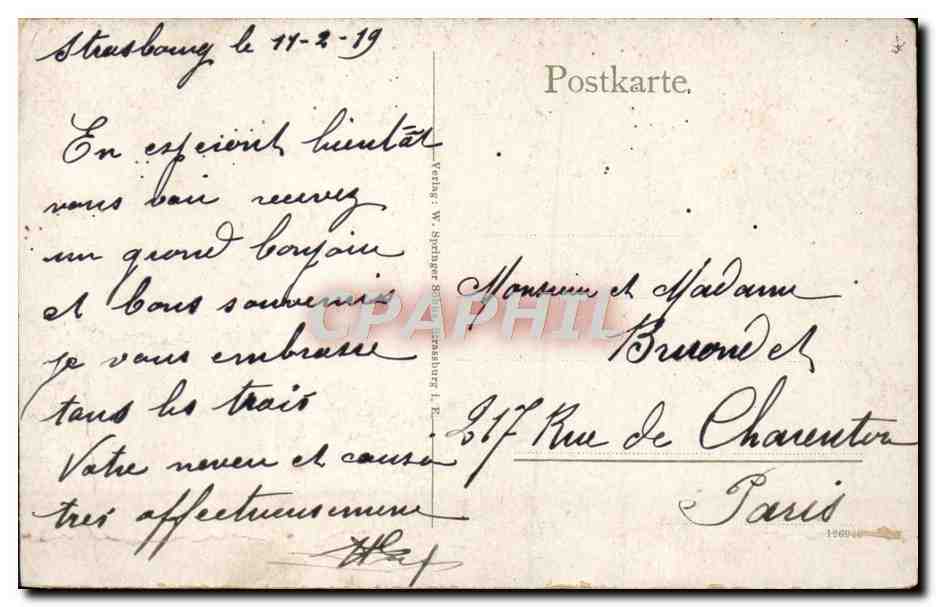 Strasbourg le 11-2-19
En espérant bientôt
vous voir recevez
un grand bonjour
et bons souvenirs
je vous embrasse
tous les trois
Votre neveu et cousin
très affectueusement
Postkarte.
Verlag: W. Springer Söhne, Strassburg i. E.
Monsieur et Madame
217 Rue de Charenton
Paris
CPAPHIL